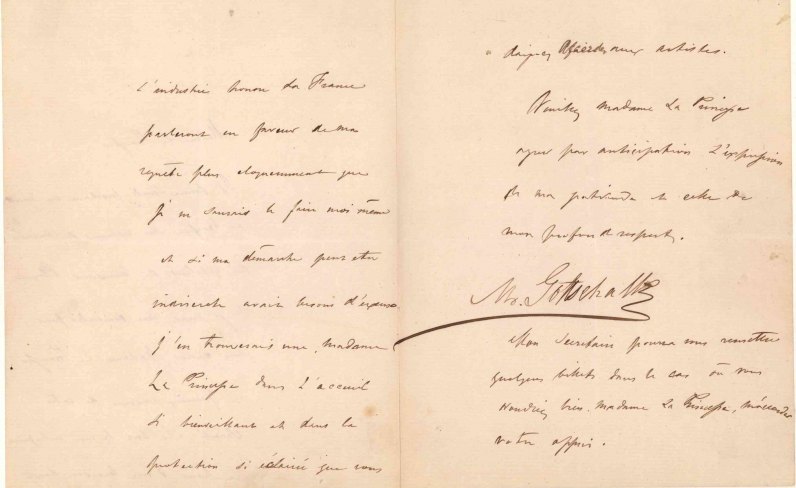 L'industrie honore la France
parleront en faveur de ma
requête plus eloquemment que
je ne saurais le faire moi même
et si ma démarche peut être
indiscrete avait besoin d'excuse
j'en trouverais une, madame
La Princesse dans l'accueil
si bienveillant et dans la
protection si éclairée que vous
daignez aux artistes.
Veuillez madame La Princesse
agréer par anticipation l'expression
de ma gratitude et celle de
mon profond respect.
Mo. Gottschalk
Mon Secrétaire pourra vous remettre
quelques billets dans le cas où vous
voudriez bien, madame La Princesse, m'accorder
votre appui.